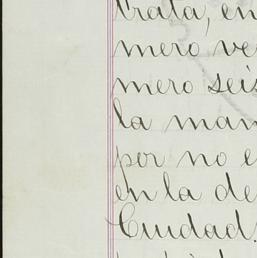 trata, en
mero ve
mero seis
la man
por no e
en la de
Ciudad,